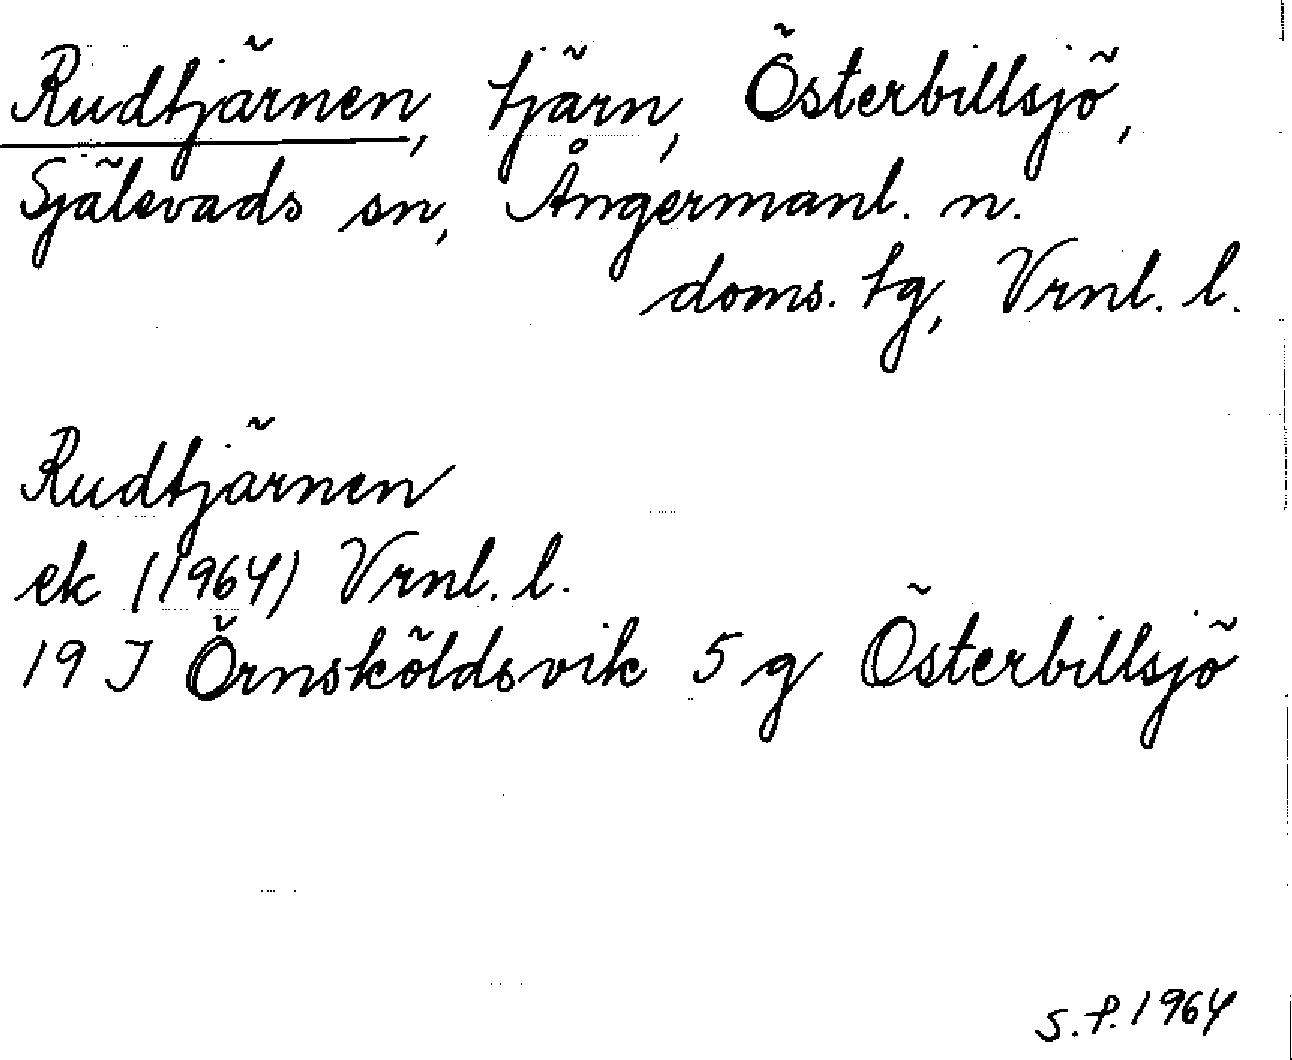 Rudtjärnen, tjärn, Österbillsjö,
Själevads sn, Ångermanl. n.
doms. tg, Vrnl. l.
Rudtjärnen
ek (1964) Vrnl. l.
19 J Örnsköldsvik 5 g Österbillsjö
S.P. 1964